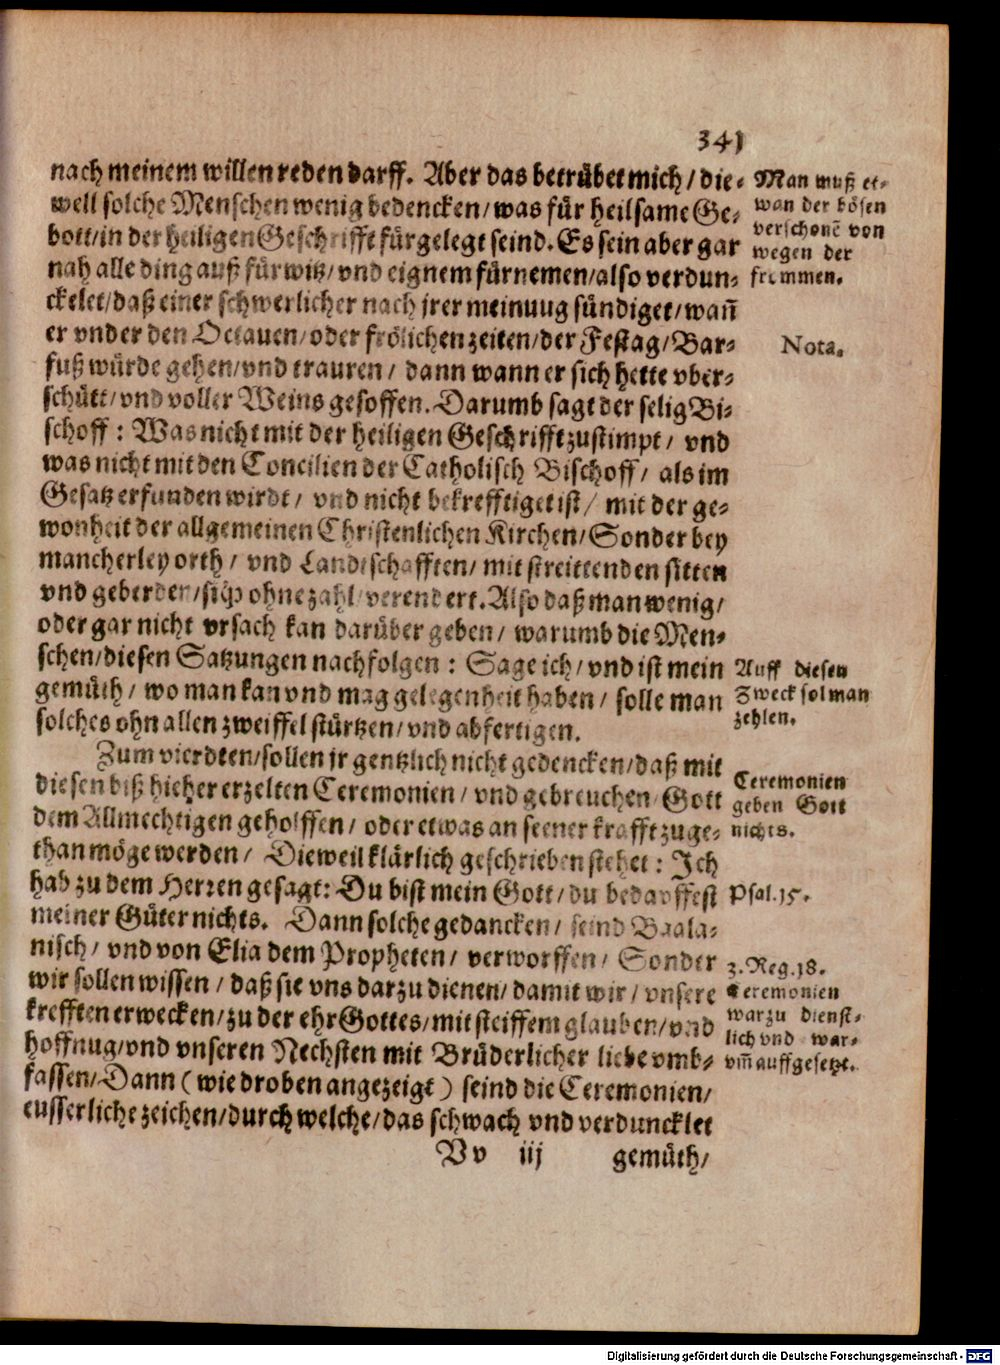 341
nach meinem willen reden darff. Aber das betrübet mich / die-
well solche Menschen wenig bedencken / was für heilsame Ge-
bott / in der heiligen Geschrifft fürgelegt seind. Es sein aber gar
nah alle ding auß fürwitz / vnd eignem fürnemen / also verdun-
ckelet / daß einer schwerlicher nach jrer meinuug sündiget / wañ
er vnder den Octauen / oder frölichen zeiten / der Festag / Bar-
fuß würde gehen / vnd trauren / dann wann er sich hette vber-
schütt / vnd voller Weins gesoffen. Darumb sagt der selig Bi-
schoff : Was nicht mit der heiligen Geschrifft zustimpt / vnd
was nicht mit den Concilien der Catholisch Bischoff / als im
Gesatz erfunden wirdt / vnd nicht bekrefftiget ist / mit der ge-
wonheit der allgemeinen Christenlichen Kirchen / Sonder bey
mancherley orth / vnd Landtschafften / mit streittenden sitten
vnd geberden / sich ohne zahl verendert. Also daß man wenig /
oder gar nicht vrsach kan darüber geben / warumb die Men-
schen / diesen Satzungen nachfolgen : Sage ich / vnd ist mein
gemüth / wo man kan vnd mag gelegenheit haben / solle man
solches ohn allen zweiffel stürtzen / vnd abfertigen.
Zum vierdten / sollen jr gentzlich nicht gedencken / daß mit
diesen biß hieher erzelten Ceremonien / vnd gebreuchen Gott
dem Allmechtigen geholffen / oder etwas an seener krafft zuge-
than möge werden / Dieweil klärlich geschrieben stehet : Ich
hab zu dem Herren gesagt: Du bist mein Gott / du bedarffest
meiner Güter nichts. Dann solche gedancken / seind Baala-
nisch / vnd von Elia dem Propheten / verworffen / Sonder
wir sollen wissen / daß sie vns darzu dienen / damit wir / vnsere
krefften erwecken / zu der ehr Gottes / mit steiffem glauben / vnd
hoffnug / vnd vnseren Nechsten mit Brüderlicher liebe vmb-
fassen / Dann ( wie droben angezeigt ) seind die Ceremonien /
eusserliche zeichen / durch welche / das schwach vnd verduncklet
Vv iij gemüth /
Man muß et-
wan der bösen
verschonẽ von
wegen der
frommen.
Nota.
Auff diesen
Zweck sol man
zehlen.
Ceremonien
geben Gott
nichts.
Psal. 15.
3. Reg. 18.
Ceremonien
warzu dienst-
lich vnd war-
vm̃ auffgesetzt.
Digitalisierung gefördert durch die Deutsche Forschungsgemeinschaft - DFG